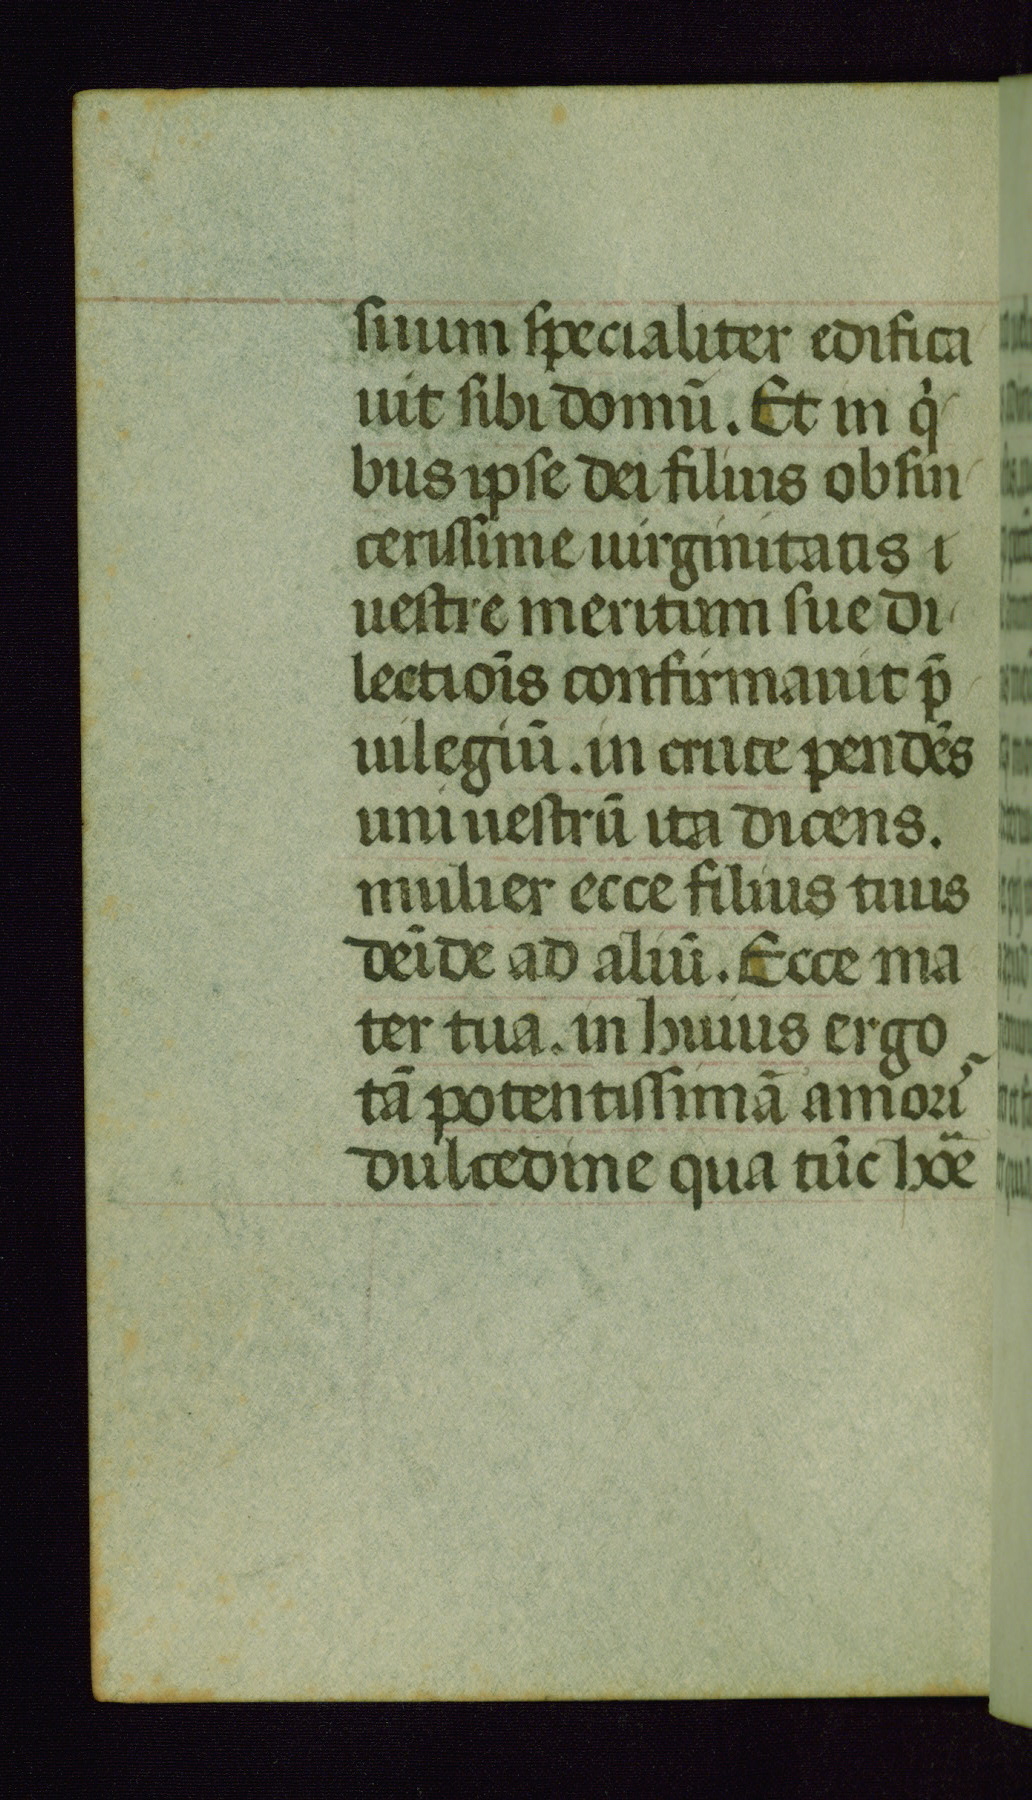 suum specialiter edifica
uit sibi domū. Et in qͥ
bus ipse dei filius ob sin
cerissime uirginitatis ı
uestre meritum sue di
lectiōis confirmauit p̄
uilegiū. in cruce pendēs
uni uestrū ita dicens.
mulier ecce filius tuus
deīde ad aliū. Ecce ma
ter tua. in huius ergo
tā potentissimā amori᷒
dulcedine qua tūc hōē